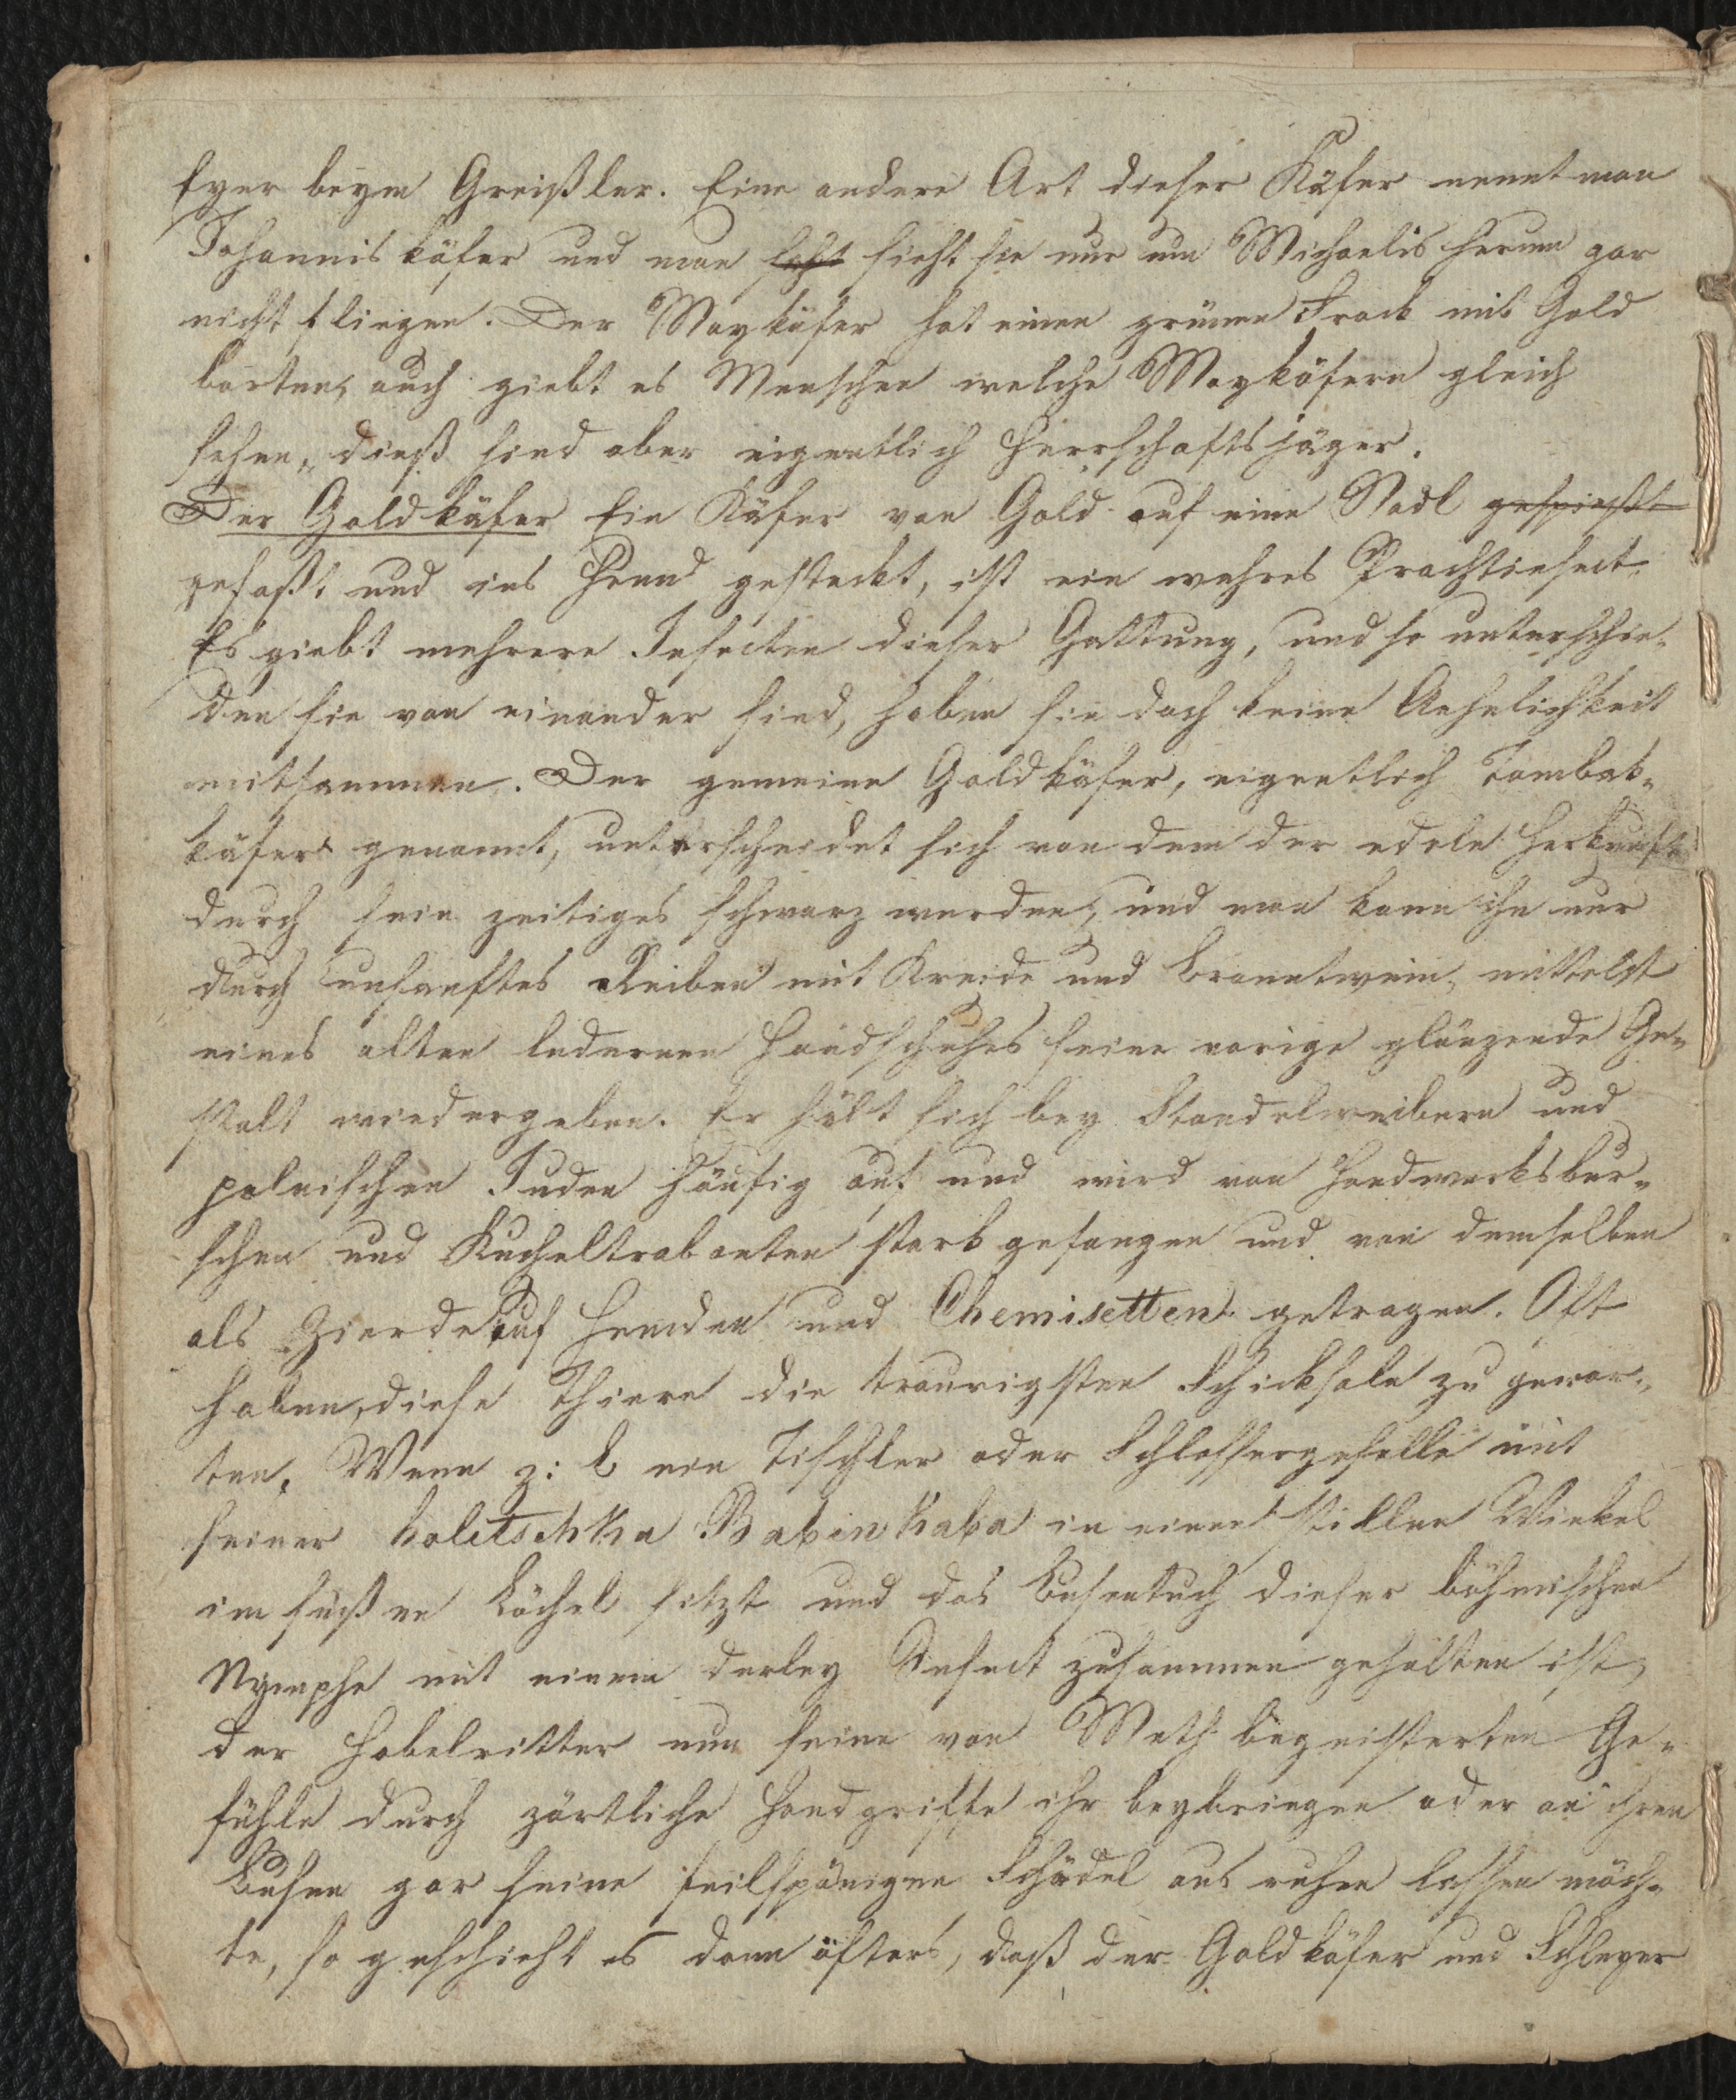 Eyer beym Greißler. Eine andere Art dieser Käfer nennt man
Johanniskäfer und man sieht sie nur um Michaelis herum gar
nicht fliegen. Der Maykäfer hat einen grünen Frack mit Gold
borten, auch giebt es Menschen welche Maykäfern gleich
sehen, dieß sind aber eigentlich Herrschaftsjäger.
Der Goldkäfer Ein Käfer von Gold auf eine Nadl gespießt
gefaßt und ins Hemd gesteckt, ist ein wahres Prachtinsect.
Es giebt mehrere Insecten dieser Gattung, und so unterschie-
den sie von einander sind, haben sie doch keine Aehnlichkeit
mitsammen. Der gemeine Goldkäfer, eigentlich Tombak-
käfer genannt, unterscheidet sich von dem der edeln Herkunft
durch sein zeitiges schwarz werden, und man kann ihn nur
durch unsanftes Reiben mit Kreide und Branntwein, mittelst
eines alten ledernen Handschuhes seine vorige glänzende Ge-
stalt wiedergeben. Er hält sich bey Standelweibern und
polnischen Juden häufig auf und wird von Handwerksbur-
schen und Kucheltrabanten stark gefangen und von demselben
als Zierde auf Hemden und Chemisetten getragen. Oft
haben diese Thiere die traurigsten Schicksale zu gewar-
ten. Wenn z: B ein Tischler oder Schlossergeselle mit
seiner holetschka Babinkaba in einen stillen Winkel
im süßen Löchel sitzt und das Busentuch dieser böhmischen
Nymphe mit einem derley Insect zusammen gehalten ist,
der Hobelritter nun seine von Meth begeisterten Ge-
fühle durch zärtliche Handgriffe ihr beybringen oder an ihren
Busen gar seine feilspänigen Schädel aus ruhen lassen möch-
te, so geschieht es dann öfters, daß der Goldkäfer und Schleyer